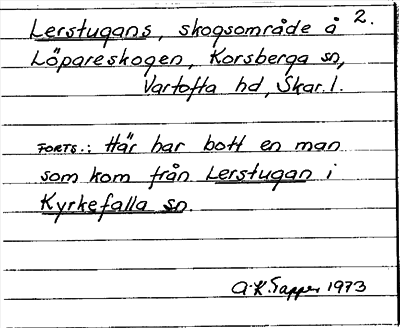 2.
Lerstugans, skogsområde å
Löpareskogen, Korsberga sn,
Vartofta hd, Skar. l.
FORTS.: Här har bott en man
som kom från Lerstugan i
Kyrkefalla sn.
A.K. Tapper 1973